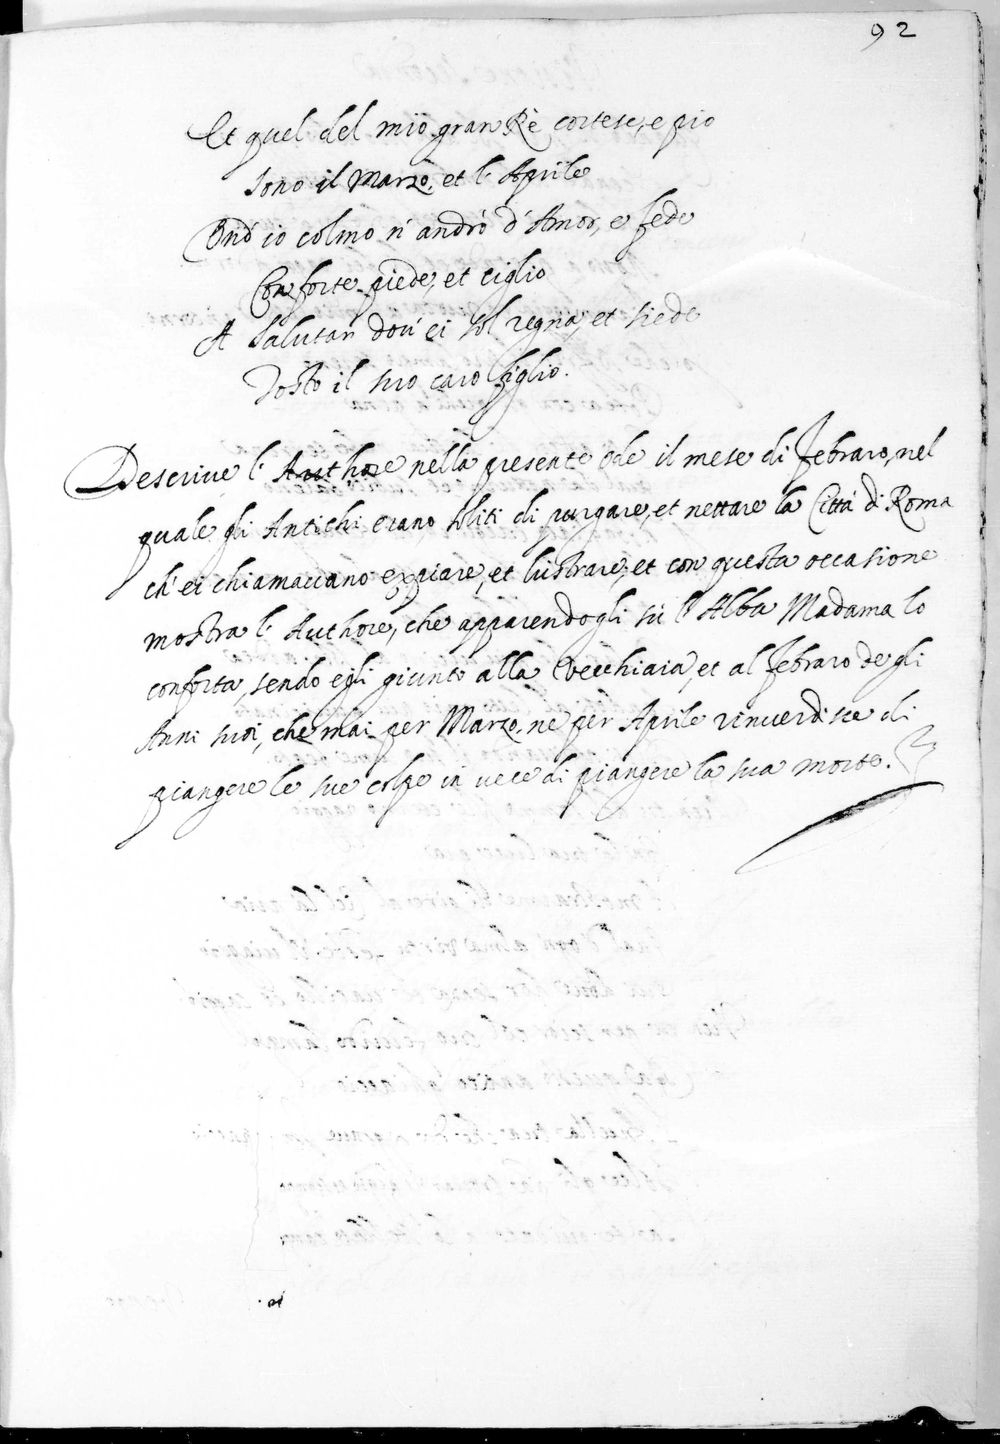 92
Et quel del mio gran Rè cortese, e pio
sono il Marzo, et l'Aprile
Ond' io colmo n' andrò d'Amor, e fede
Con forte piede, et ciglio
A salutar dov' ei sol regna, et siede
Tosto il suo caro figlio.
Descrive l'Authore nella presente Ode il mese di Febraro, nel
quale gli Antichi erano soliti di purgare, et nettare la Città di Roma
ch' ei chiamavano expiare, et lustrare, et con questa occasione
mostra l'Authore, che apparendogli sù l'Alba Madama lo
conforta, sendo egli giunto alla Vecchiaia, et al Febraro de gli
Anni suoi, che mai per Marzo, ne per Aprile rinverdisce di
piangere le sue colpe in vece di piangere la sua morte.